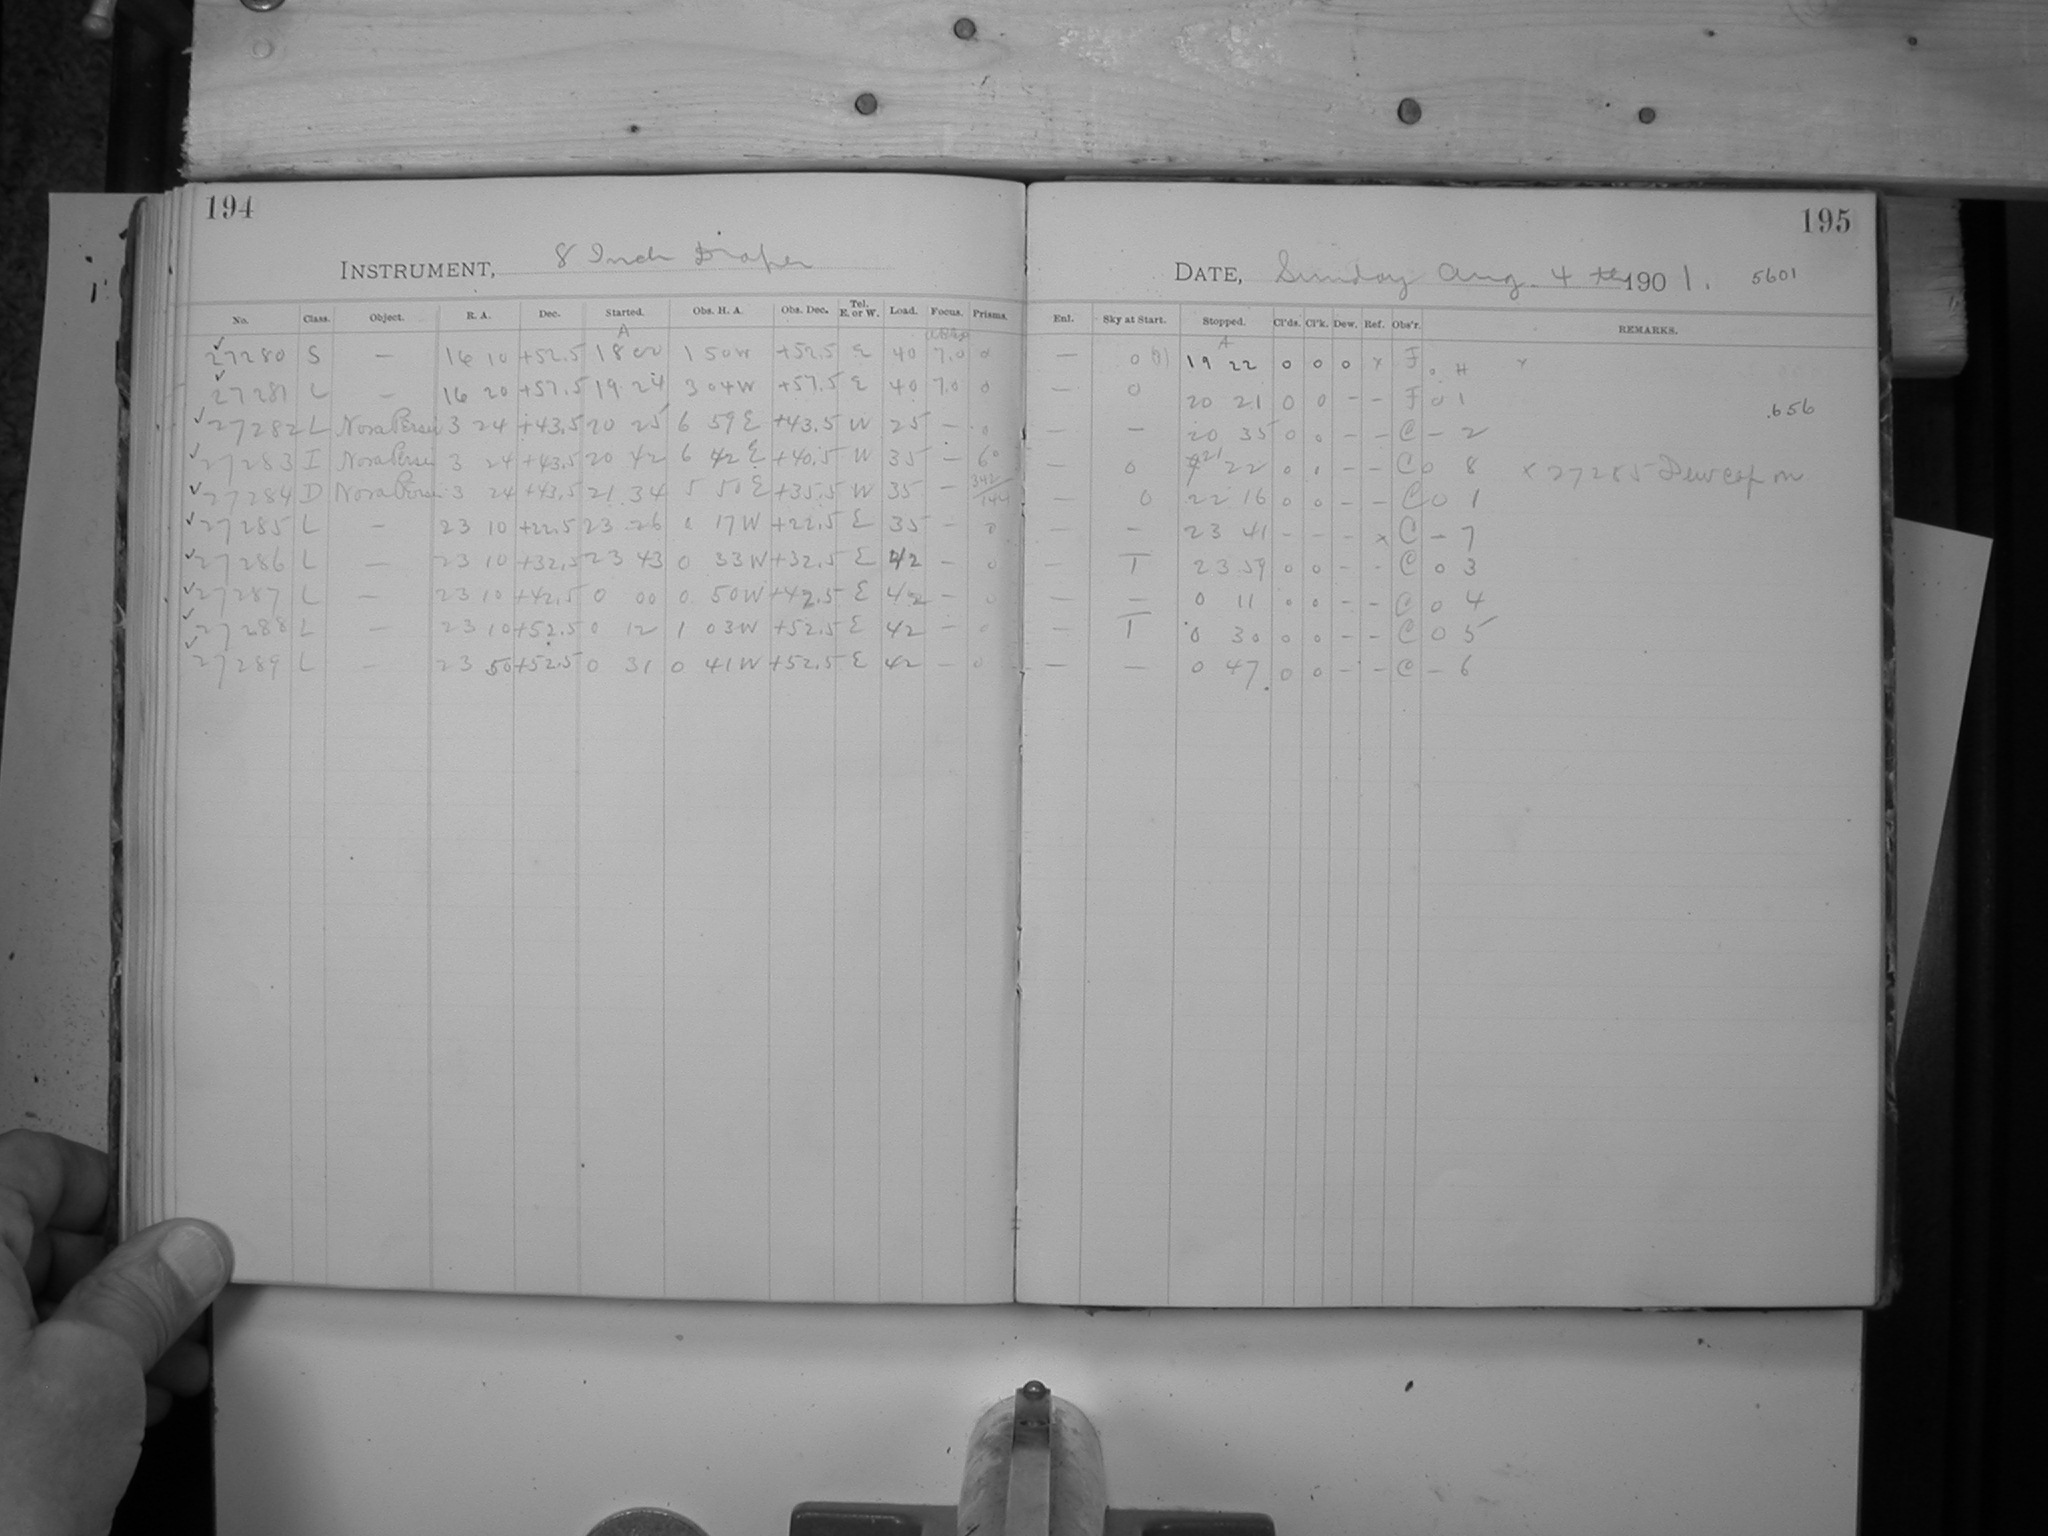 194
INSTRUMENT, 8 Inch Draper
No. Class. Object. R. A. Dec. Started. Obs. H. A. Obs. Dec. Tel. E. or W. Load. Focus. Prisms.
A
27280 S — 16 10 +52.5 18 00 1 50W +52.5 E 40 7.0 0
27281 L — 16 20 +57.5 19 24 3 04W +57.5 E 40 7.0 0
27282 L Nova Persei 3 24 +43.5 20 25 6 59E +43.5 W 25 — 0
27283 I Nova Persei 3 24 +43.5 20 42 6 42E +40.5 W 35 — 60
27284 D Nova Persei 3 24 +43.5 21 34 5 50E +35.5 W 35 —
27285 L — 23 10 +22.5 23 26 0 17W +22.5 E 35 — 0
27286 L — 23 10 +32.5 23 43 0 33W +32.5 E 42 — 0
27287 L — 23 10 +42.5 0 00 0 50W +42.5 E 42 — 0
27288 L — 23 10 +52.5 0 12 1 03W +52.5 E 42 — 0
27289 L — 23 50 +52.5 0 31 0 41W +52.5 E 42 — 0
195
DATE, Sunday Aug. 4th 1901. 5601
Enl. Sky at Start. Stopped. Cl'ds. Cl'k. Dew. Ref. Obs'r. REMARKS.
A
— 0 19 22 0 0 0 x F 0 H x
— 0 20 21 0 0 - - F 0 1 .656
— — 20 35 0 0 - - C - 2
— 0 21 22 0 1 - - C 0 8 x 27285 Dew cap on
— 0 22 16 0 0 - - C 0 1
— — 23 41 - - - x C - 7
— T 23 59 0 0 - - C 0 3
— — 0 11 0 0 - - C 0 4
— T 0 30 0 0 - - C 0 5
— — 0 47 0 0 - - C - 6